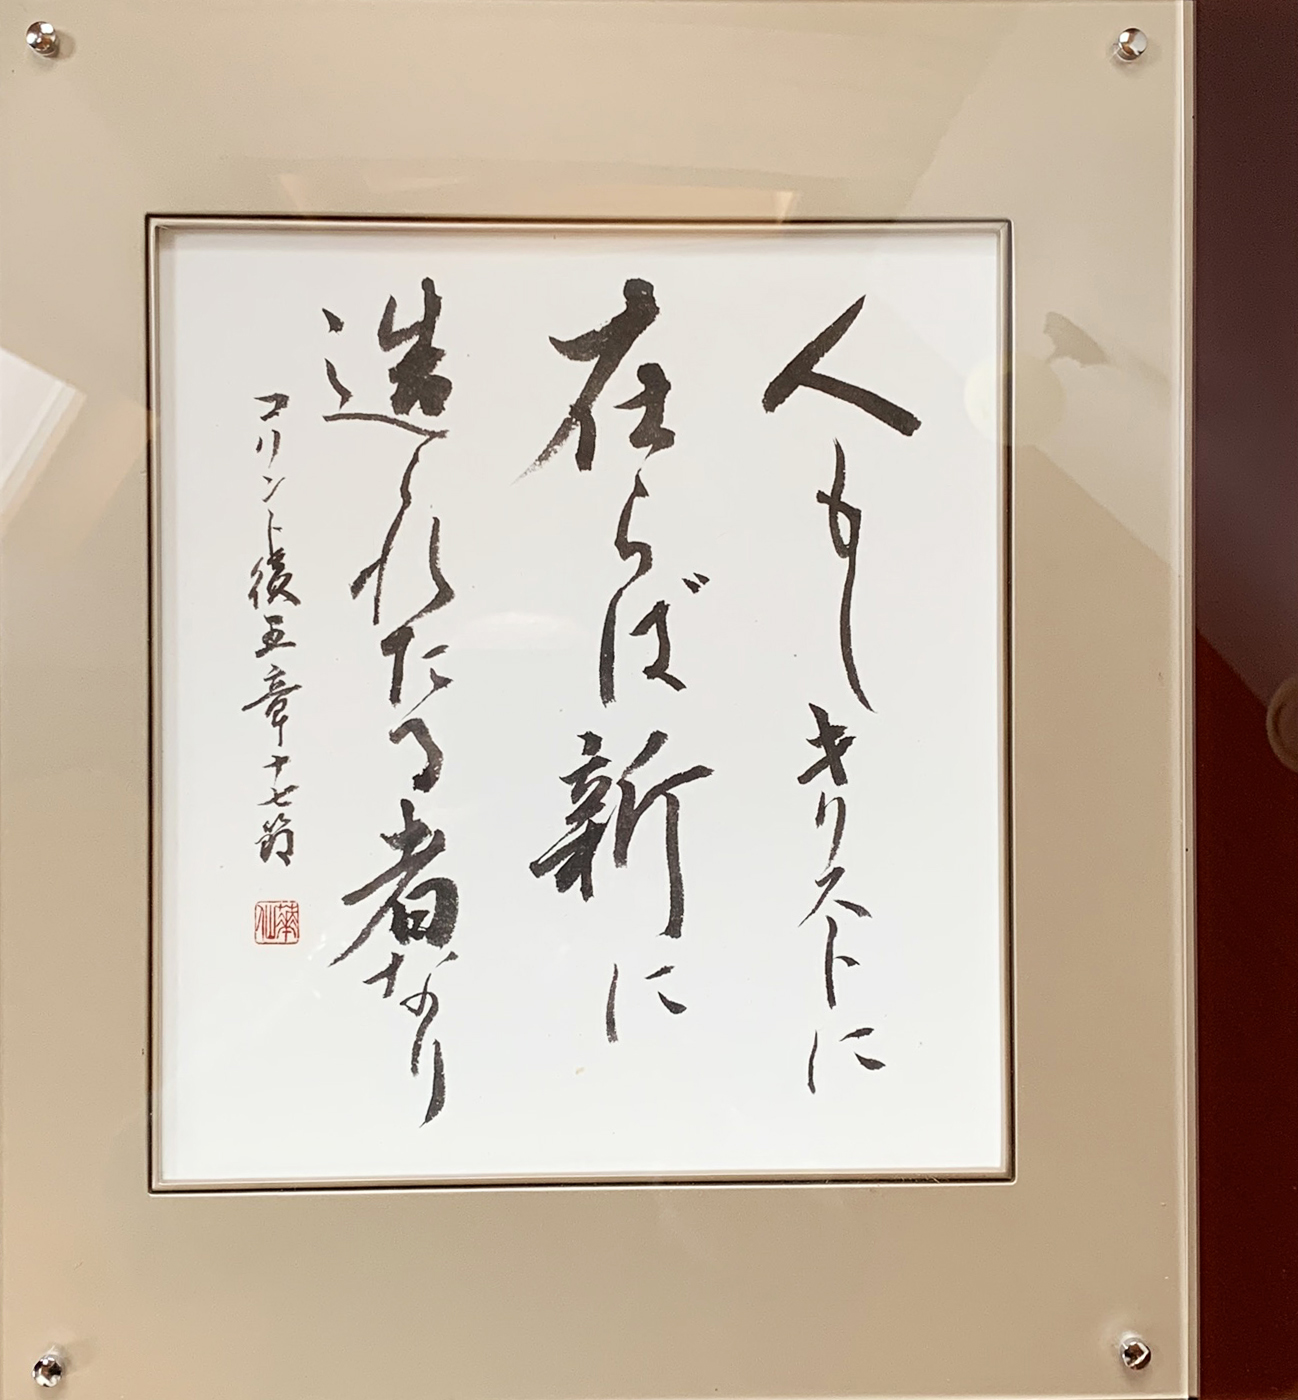 人もしキリストに
在らば新に
造られたる者なり
コリント後五章十七節